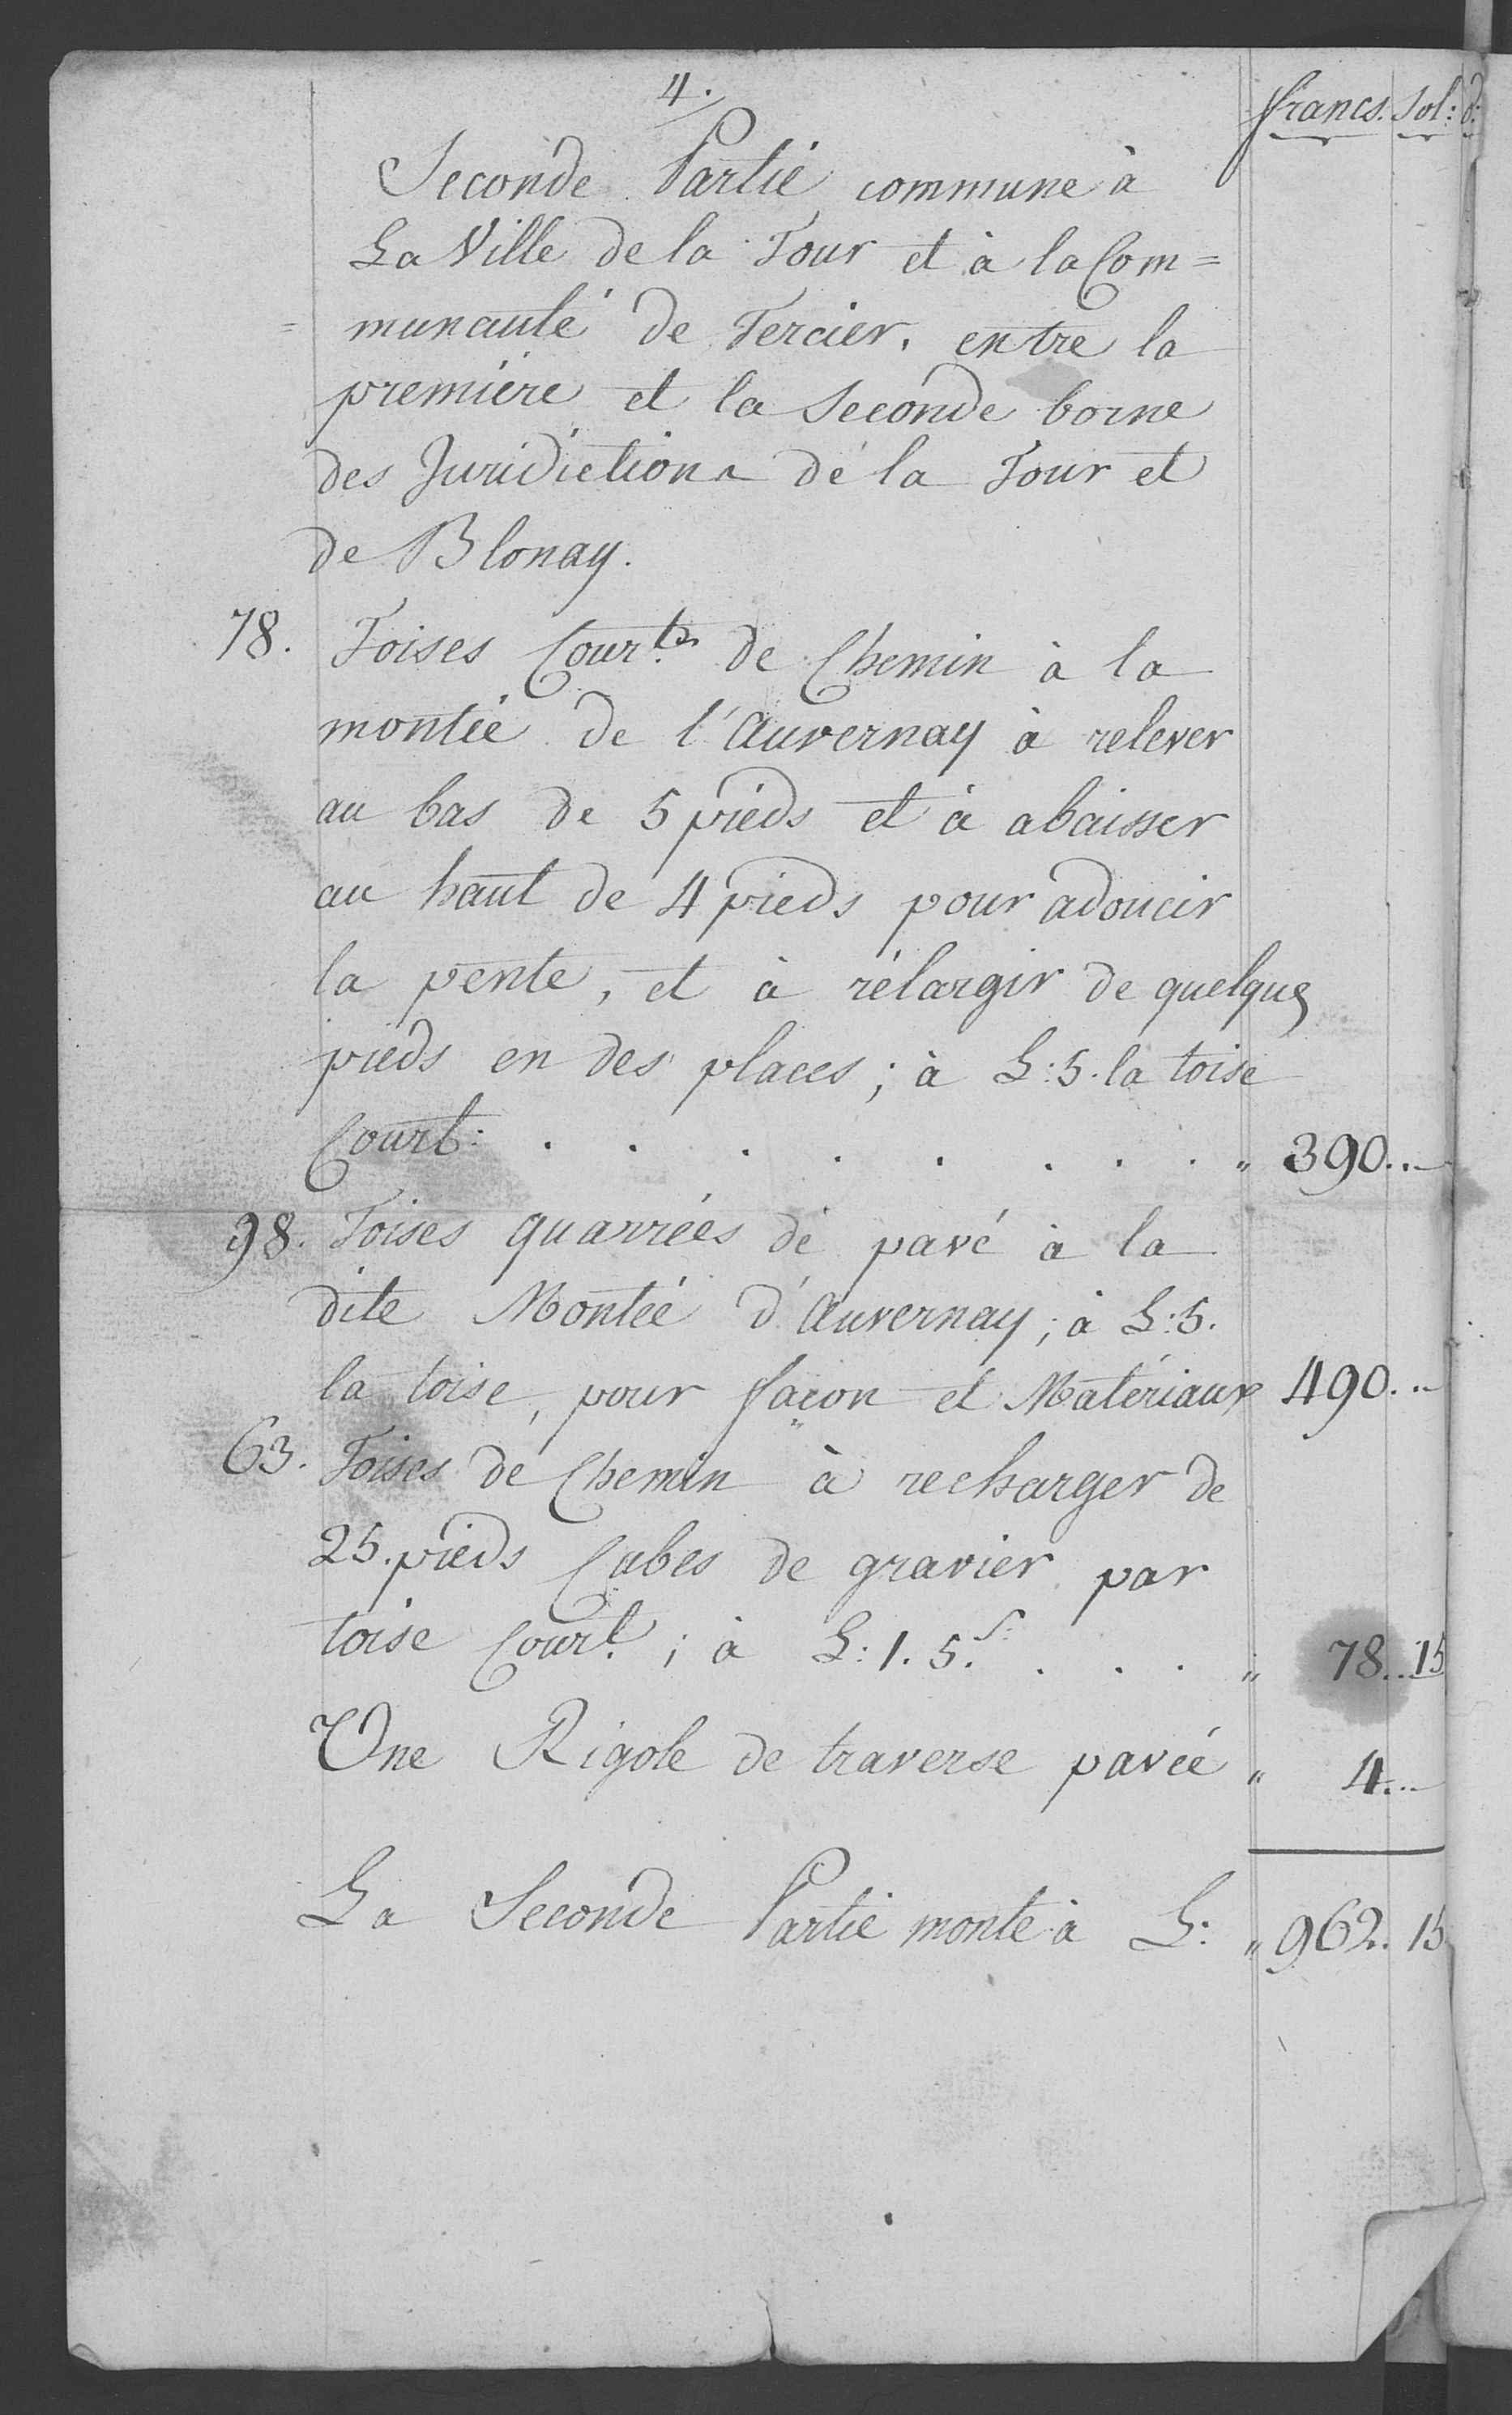 4.
francs. Sol: d:
Seconde Partie commune à
La Ville de la Tour et à la Com=
= munauté de Tercier, entre la
première et la Seconde borne
des Juridictions de la Tour et
de Blonay.
78. Toises Court.es de Chemin à la
montée de l'Auvernay à relever
au bas de 5 pieds et à abaisser
au haut de 4 pieds pour adoucir
la pente, et à rélargir de quelques
pieds en des places; à L: 5. la toise
Court: . . . . . . . . " 390...
98. Toises quarrées de pavé à la
dite Montée d'Auvernay; à L: 5.
la toise, pour façon et Matériaux 490...
63. Toises de Chemin à recharger de
25. pieds Cubes de gravier par
toise Court.; à L: 1. 5.s: . . . " 78.. 15
Une Rigole de traverse pavée " 4...
La Seconde Partie monte à L: " 962. 15